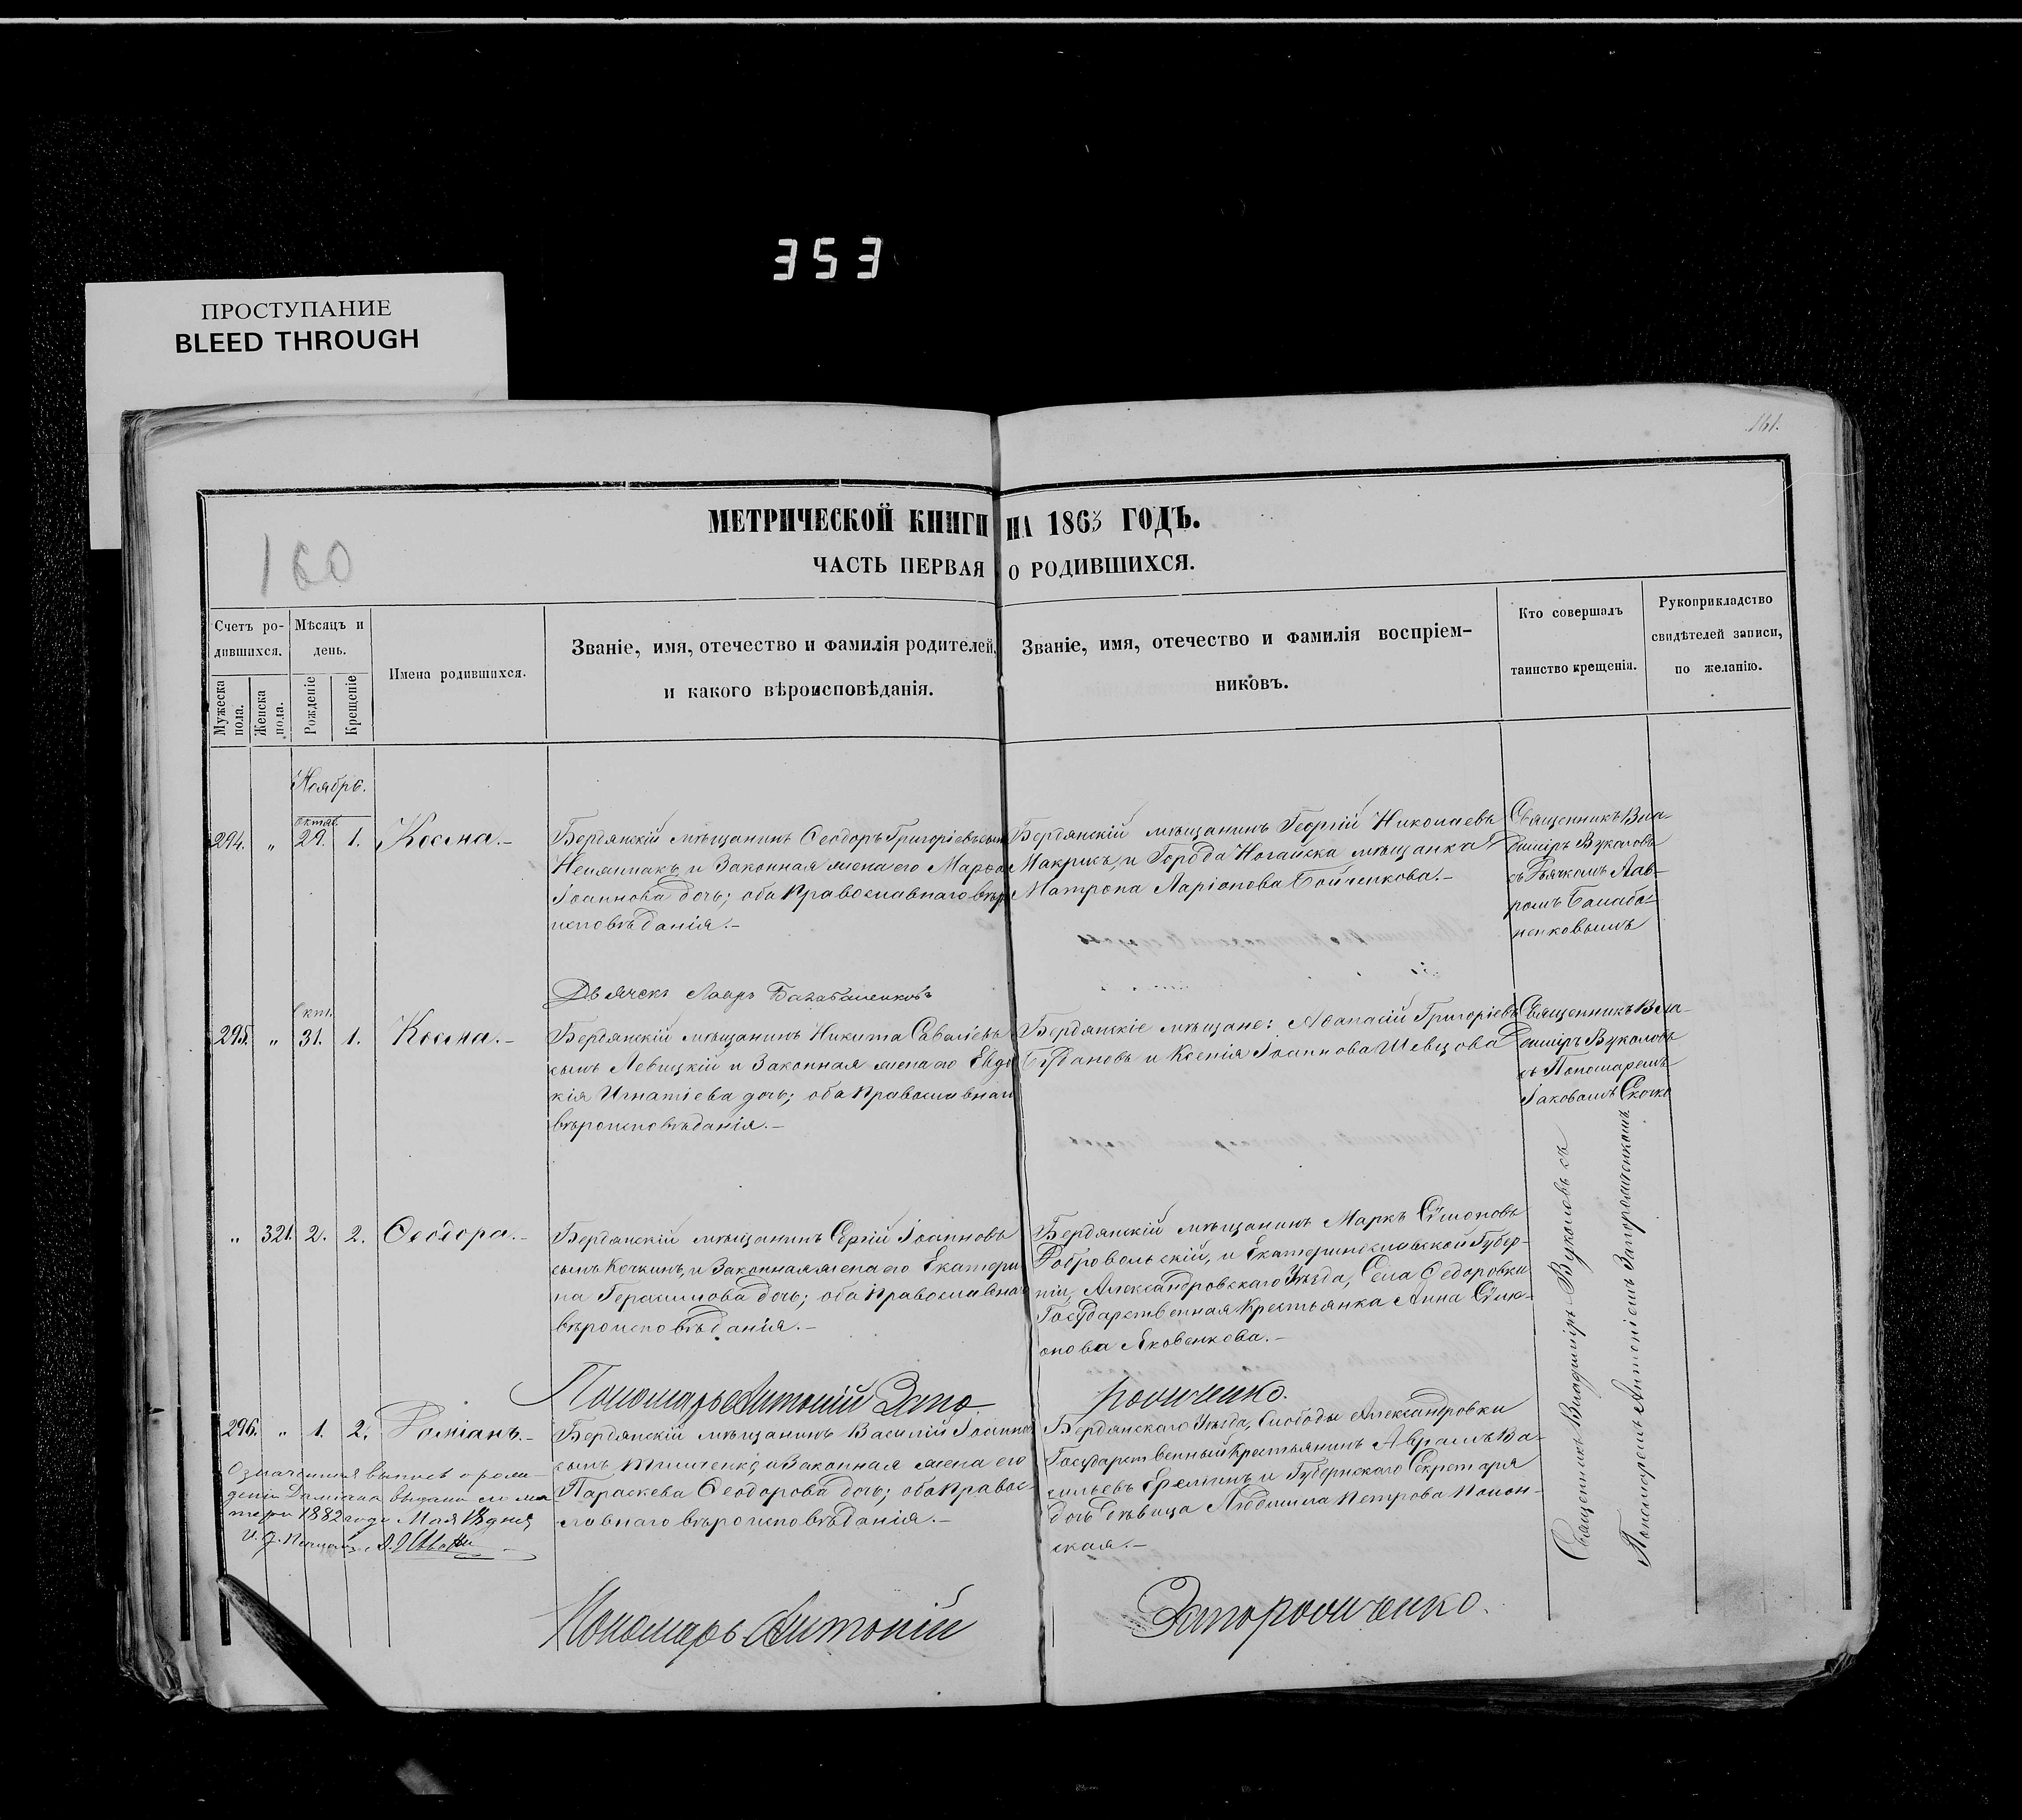 353
ПРОСТУПАНИЕ
BLEED THROUGH
161.
160
МЕТРИЧЕСКОЙ КНИГИ НА 1863 ГОДЪ.
ЧАСТЬ ПЕРВАЯ О РОДИВШИХСЯ.
Счетъ ро-
дившихся.
Мужеска пола.
Женска пола.
Мѣсяцъ и
день.
Рожденіе
Крещеніе
Имена родившихся.
Званіе, имя, отечество и фамилія родителей,
и какого вѣроисповѣданія.
Званіе, имя, отечество и фамилія воспріем-
никовъ.
Кто совершалъ
таинство крещенія.
Рукоприкладство
свидѣтелей записи,
по желанію.
Ноябрь.
294. " Октяб. 29. 1. Косма.-
Бердянскій мѣщанинъ Ѳеодоръ Григоріевъ сынъ
и Законная жена его Марѳа
Іоаннова дочь; оба Православнаго вѣро
исповѣданія.-
Бердянскій мѣщанинъ Георгій Николаевъ
Макрисъ, и Города Ногайска мѣщанка
Матрона Ларіонова Бойченкова.-
Священникъ Вла-
димиръ Вукаловъ
съ Дьячкомъ Лав-
ромъ Балаба-
ненковымъ
Дьячекъ Лавръ Балабаненковъ
295. " Окт. 31. 1. Косма.-
Бердянскій мѣщанинъ Никита Саваліевъ
сынъ Левицкій и Законная жена его Евдо
кія Игнатіева дочь; оба Православнаго
вѣроисповѣданія.-
Бердянскіе мѣщане: Аѳанасій Григоріевъ
и Ксенія Іоаннова Шевцова
Священникъ Вла-
димиръ Вукаловъ
съ Пономаремъ
Іаковомъ Скочко
" 321. 2. 2. Ѳеодора.-
Бердянскій мѣщанинъ Сергій Іоанновъ
сынъ Кочкинъ, и Законная жена его Екатери
на Герасимова дочь; оба Православнаго
вѣроисповѣданія.-
Бердянскій мѣщанинъ Маркъ Сѵмоновъ
Добровольскій, и Екатеринославской Губер-
ніи, Александровскаго Уѣзда, Села Ѳедоровки
Государственная Крестьянка Анна Сѵме-
онова Яковенкова.-
Пономарь Антоній Запо
рожченко.
296. " 1. 2. Даміанъ.-
Бердянскій мѣщанинъ Василій Іоанновъ
сынъ Тимченко, и Законная жена его
Параскева Ѳеодорова дочь; оба Правос-
лавнаго вѣроисповѣданія.-
Бердянскаго Уѣзда, Слободы Александровки
Государственный Крестьянинъ Аврамъ Ва-
сильевъ Ереминъ и Губернскаго Секретаря
дочь дѣвица Людмила Петрова Полон-
ская.-
Священникъ Владимиръ Вукаловъ съ
Пономаремъ Антоніемъ Запорожченкомъ
Означенная выпись о рож-
деніи Даміана выдана его ма
тери 1882 года Мая 18 дня
Пономарь Антоній
Запорожченко.